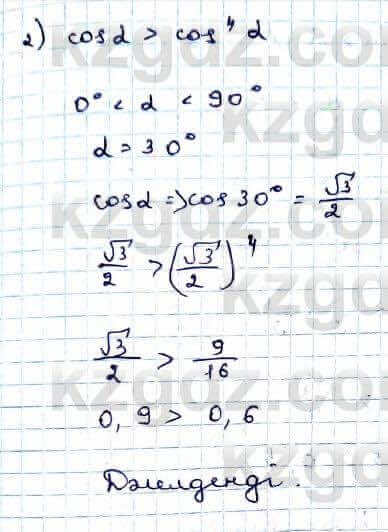 2) cos α > cos⁴ α
0° < α < 90°
α = 30°
cos α => cos 30° = √3/2
√3/2 > (√3/2)⁴
√3/2 > 9/16
0,9 > 0,6
Дәлелденді.